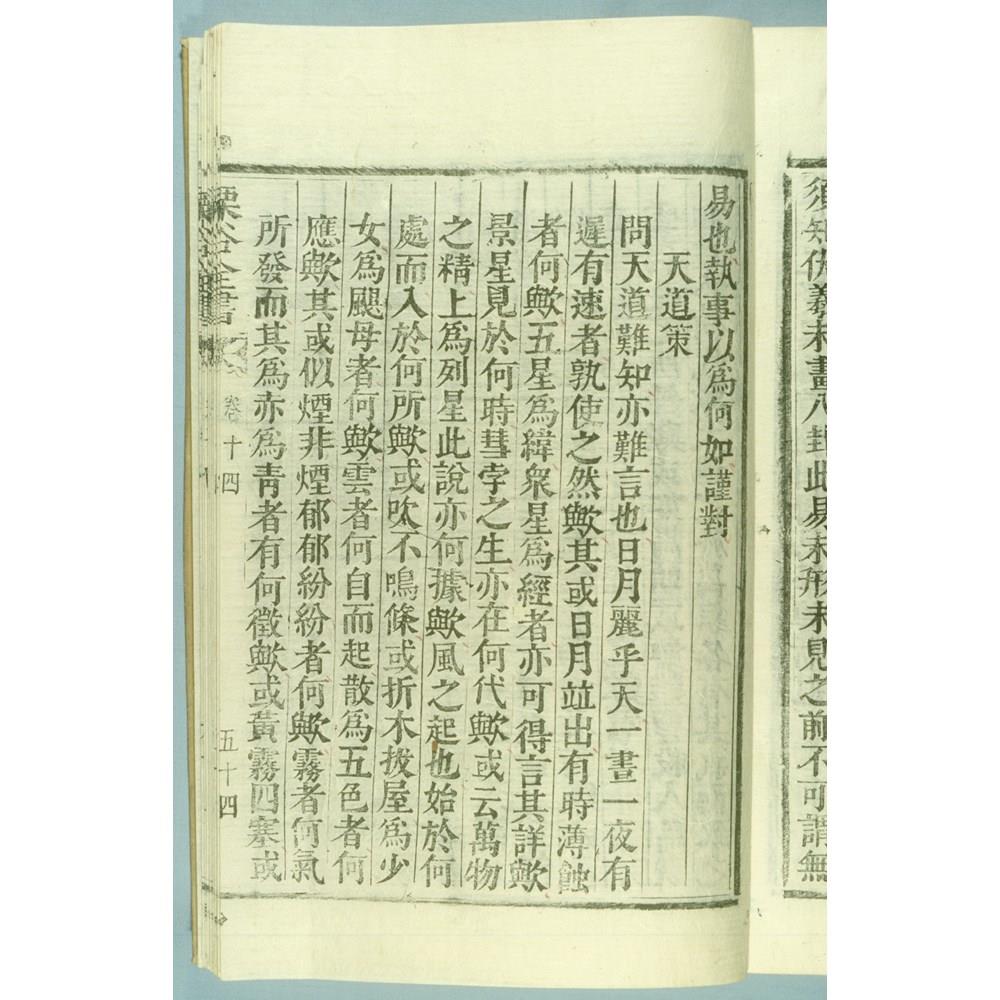 須知伏羲未畫八卦此易未形未見之前不可謂無
易也執事以爲何如謹對
天道策
問天道難知亦難言也日月麗乎天一晝一夜有
遲有速者孰使之然歟其或日月竝出有時薄蝕
者何歟五星爲緯衆星爲經者亦可得言其詳歟
景星見於何時彗孛之生亦在何代歟或云萬物
之精上爲列星此說亦何據歟風之起也始於何
處而入於何所歟或吹不鳴條或折木拔屋爲少
女爲颶母者何歟雲者何自而起散爲五色者何
應歟其或似煙非煙郁郁紛紛者何歟霧者何氣
所發而其爲赤爲靑者有何徵歟或黃霧四塞或
栗谷全書 卷十四 五十四